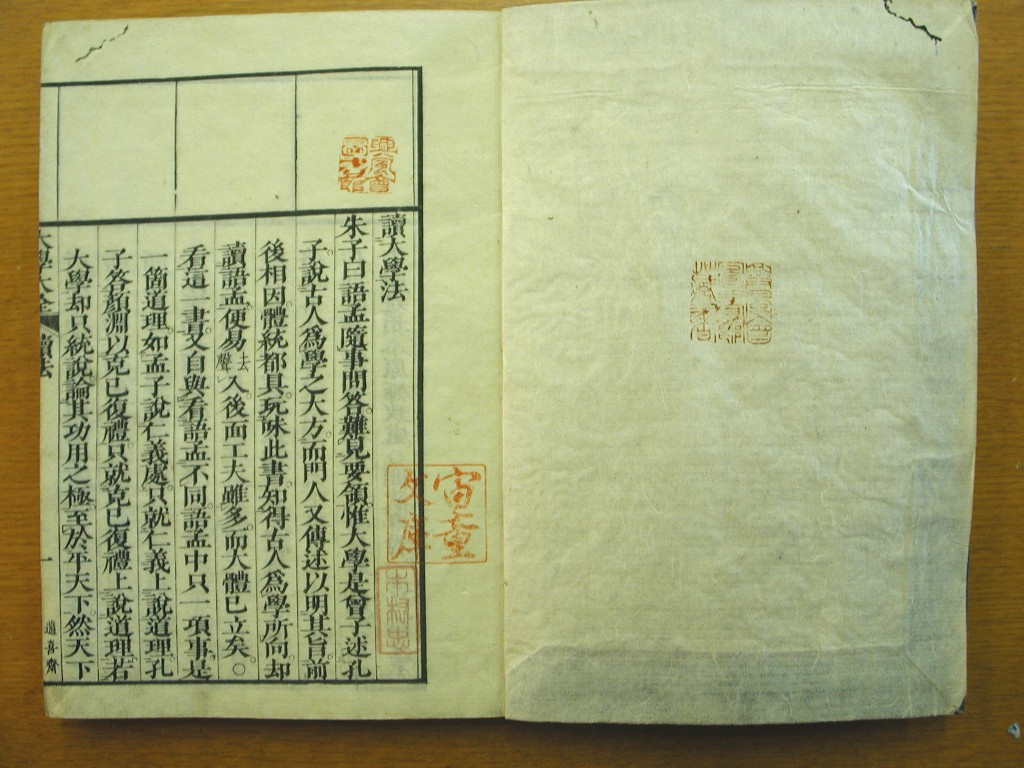 讀大學法
朱子曰語孟隨事問答難見要領惟大學是曾子述孔
子說古人爲學之大方而門人又傳述以明其旨前
後相因體統都具玩味此書知得古人爲學所向却
讀語孟便易去聲入後面工夫雖多而大體已立矣○
看這一書又自與看語孟不同語孟中只一項事是
一箇道理如孟子說仁義處只就仁義上說道理孔
子答顏淵以克己復禮只就克己復禮上說道理若
大學却只統說論其功用之極至於平天下然天下
大學大全 讀法 一 遜喜齋